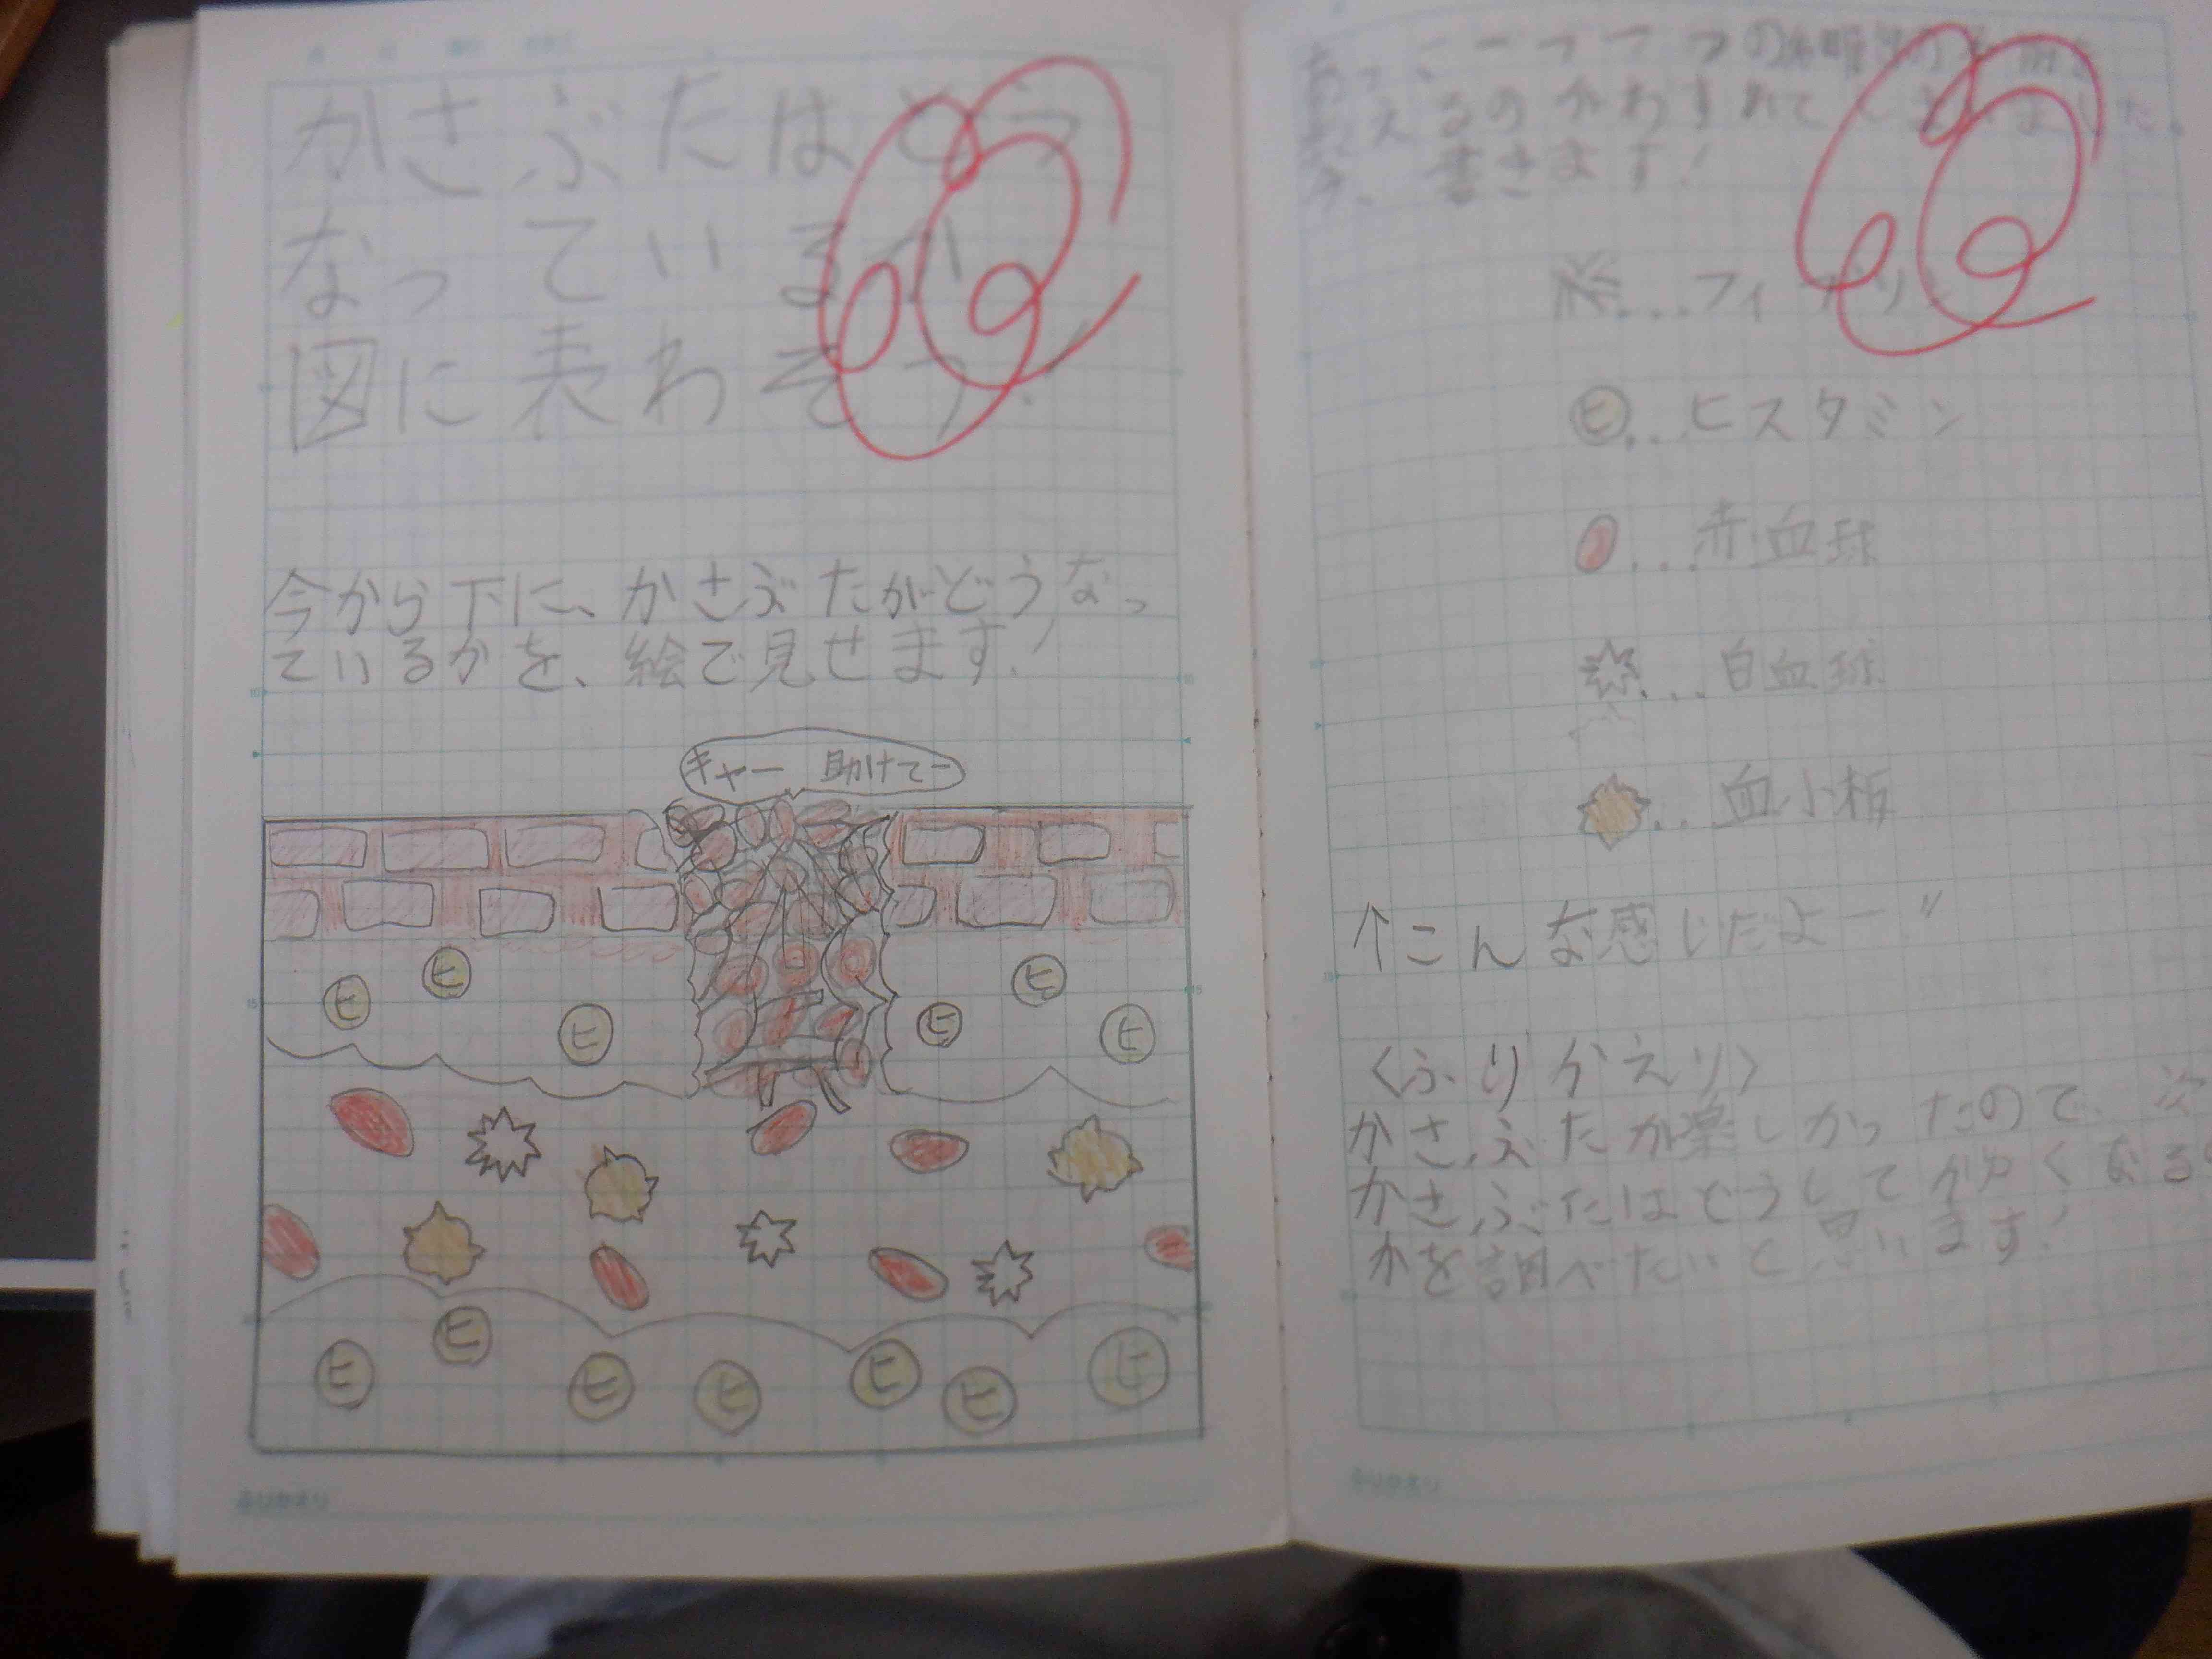 かさぶたはどう
なっているか
図に表わそう!
今から下に、かさぶたがどうなっ
ているかを、絵で見せます!
キャー 助けてー
ヒ
ヒ
ヒ
ヒ
ヒ
ヒ
ヒ
ヒ
ヒ
ヒ
ヒ
ヒ
ヒ
ふりかえり
あっ、
えるのがわすれてしまいました。
今、書きます!
...フィブリン
ヒ...ヒスタミン
...赤血球
...白血球
...血小板
↑こんな感じだよー"
〈ふりかえり〉
かさぶたが楽しかったので、次
かさぶたはどうしてかゆくなる
かを調べたいと思います!
ふりかえり